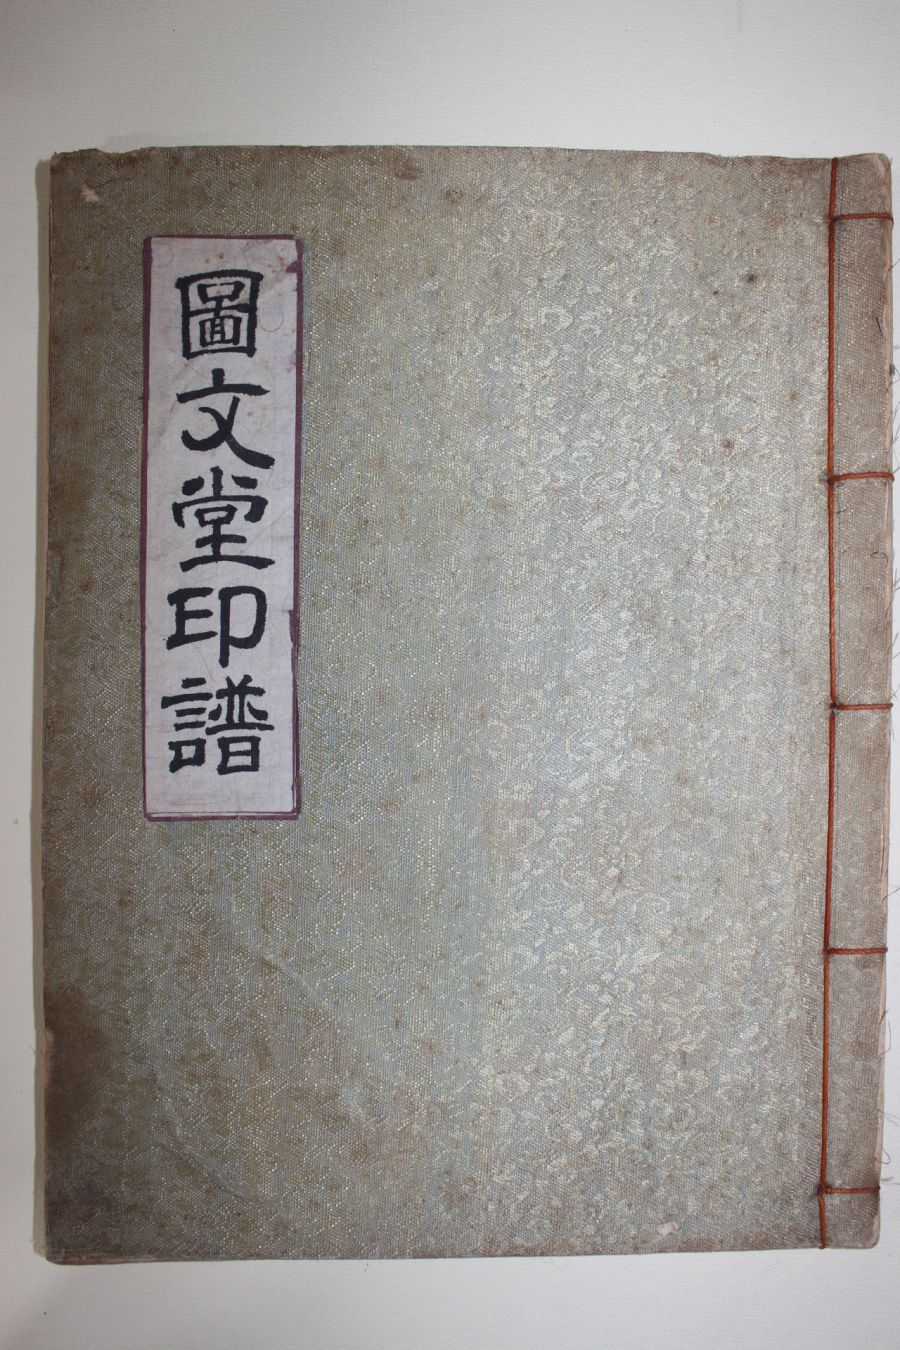 圖文堂印譜